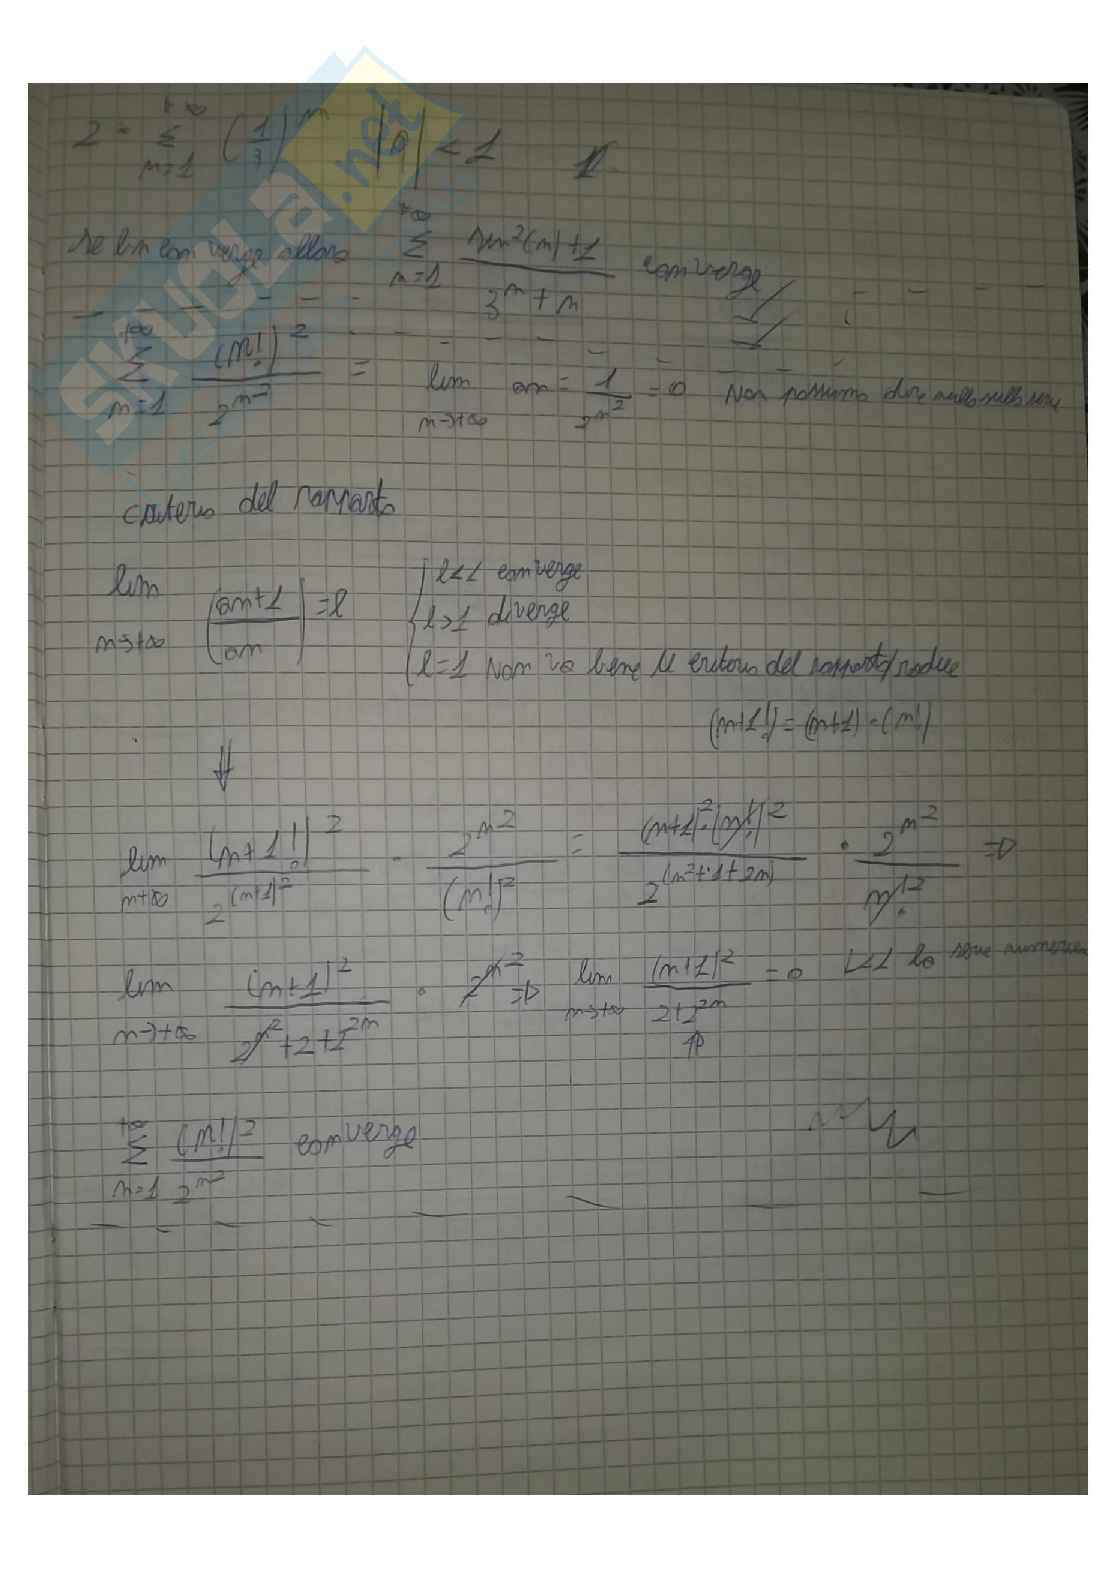 2 · +∞ Σ n=1 (1/3)^n |a| < 1
se bn converge allora +∞ Σ n=1 (sen²(n)+1)/(3^n + n) converge
+∞ Σ n=1 (n!)²/2^n² = lim n→+∞ an = 1/2^n² = 0 Non possiamo dire nulla sulla serie
criterio del rapporto
lim n→+∞ |an+1/an| = l { l<1 converge
l>1 diverge
l=1 Non va bene il criterio del rapporto/radice
(n+1!) = (n+1)·(n!)
⇓
lim n→+∞ (n+1!)²/2^(n+1)² · 2^n²/(n!)² = (n+1)²·(n!)²/2^(n²+1+2n) · 2^n²/n!² ⇒
lim n→+∞ (n+1)²/2^n²+2+2^2n · 2^n² ⇒ lim n→+∞ (n+1)²/2+2^2n = 0 L<1 la serie numerica
⇑
+∞ Σ n=1 (n!)²/2^n² converge
SKUOLA.net